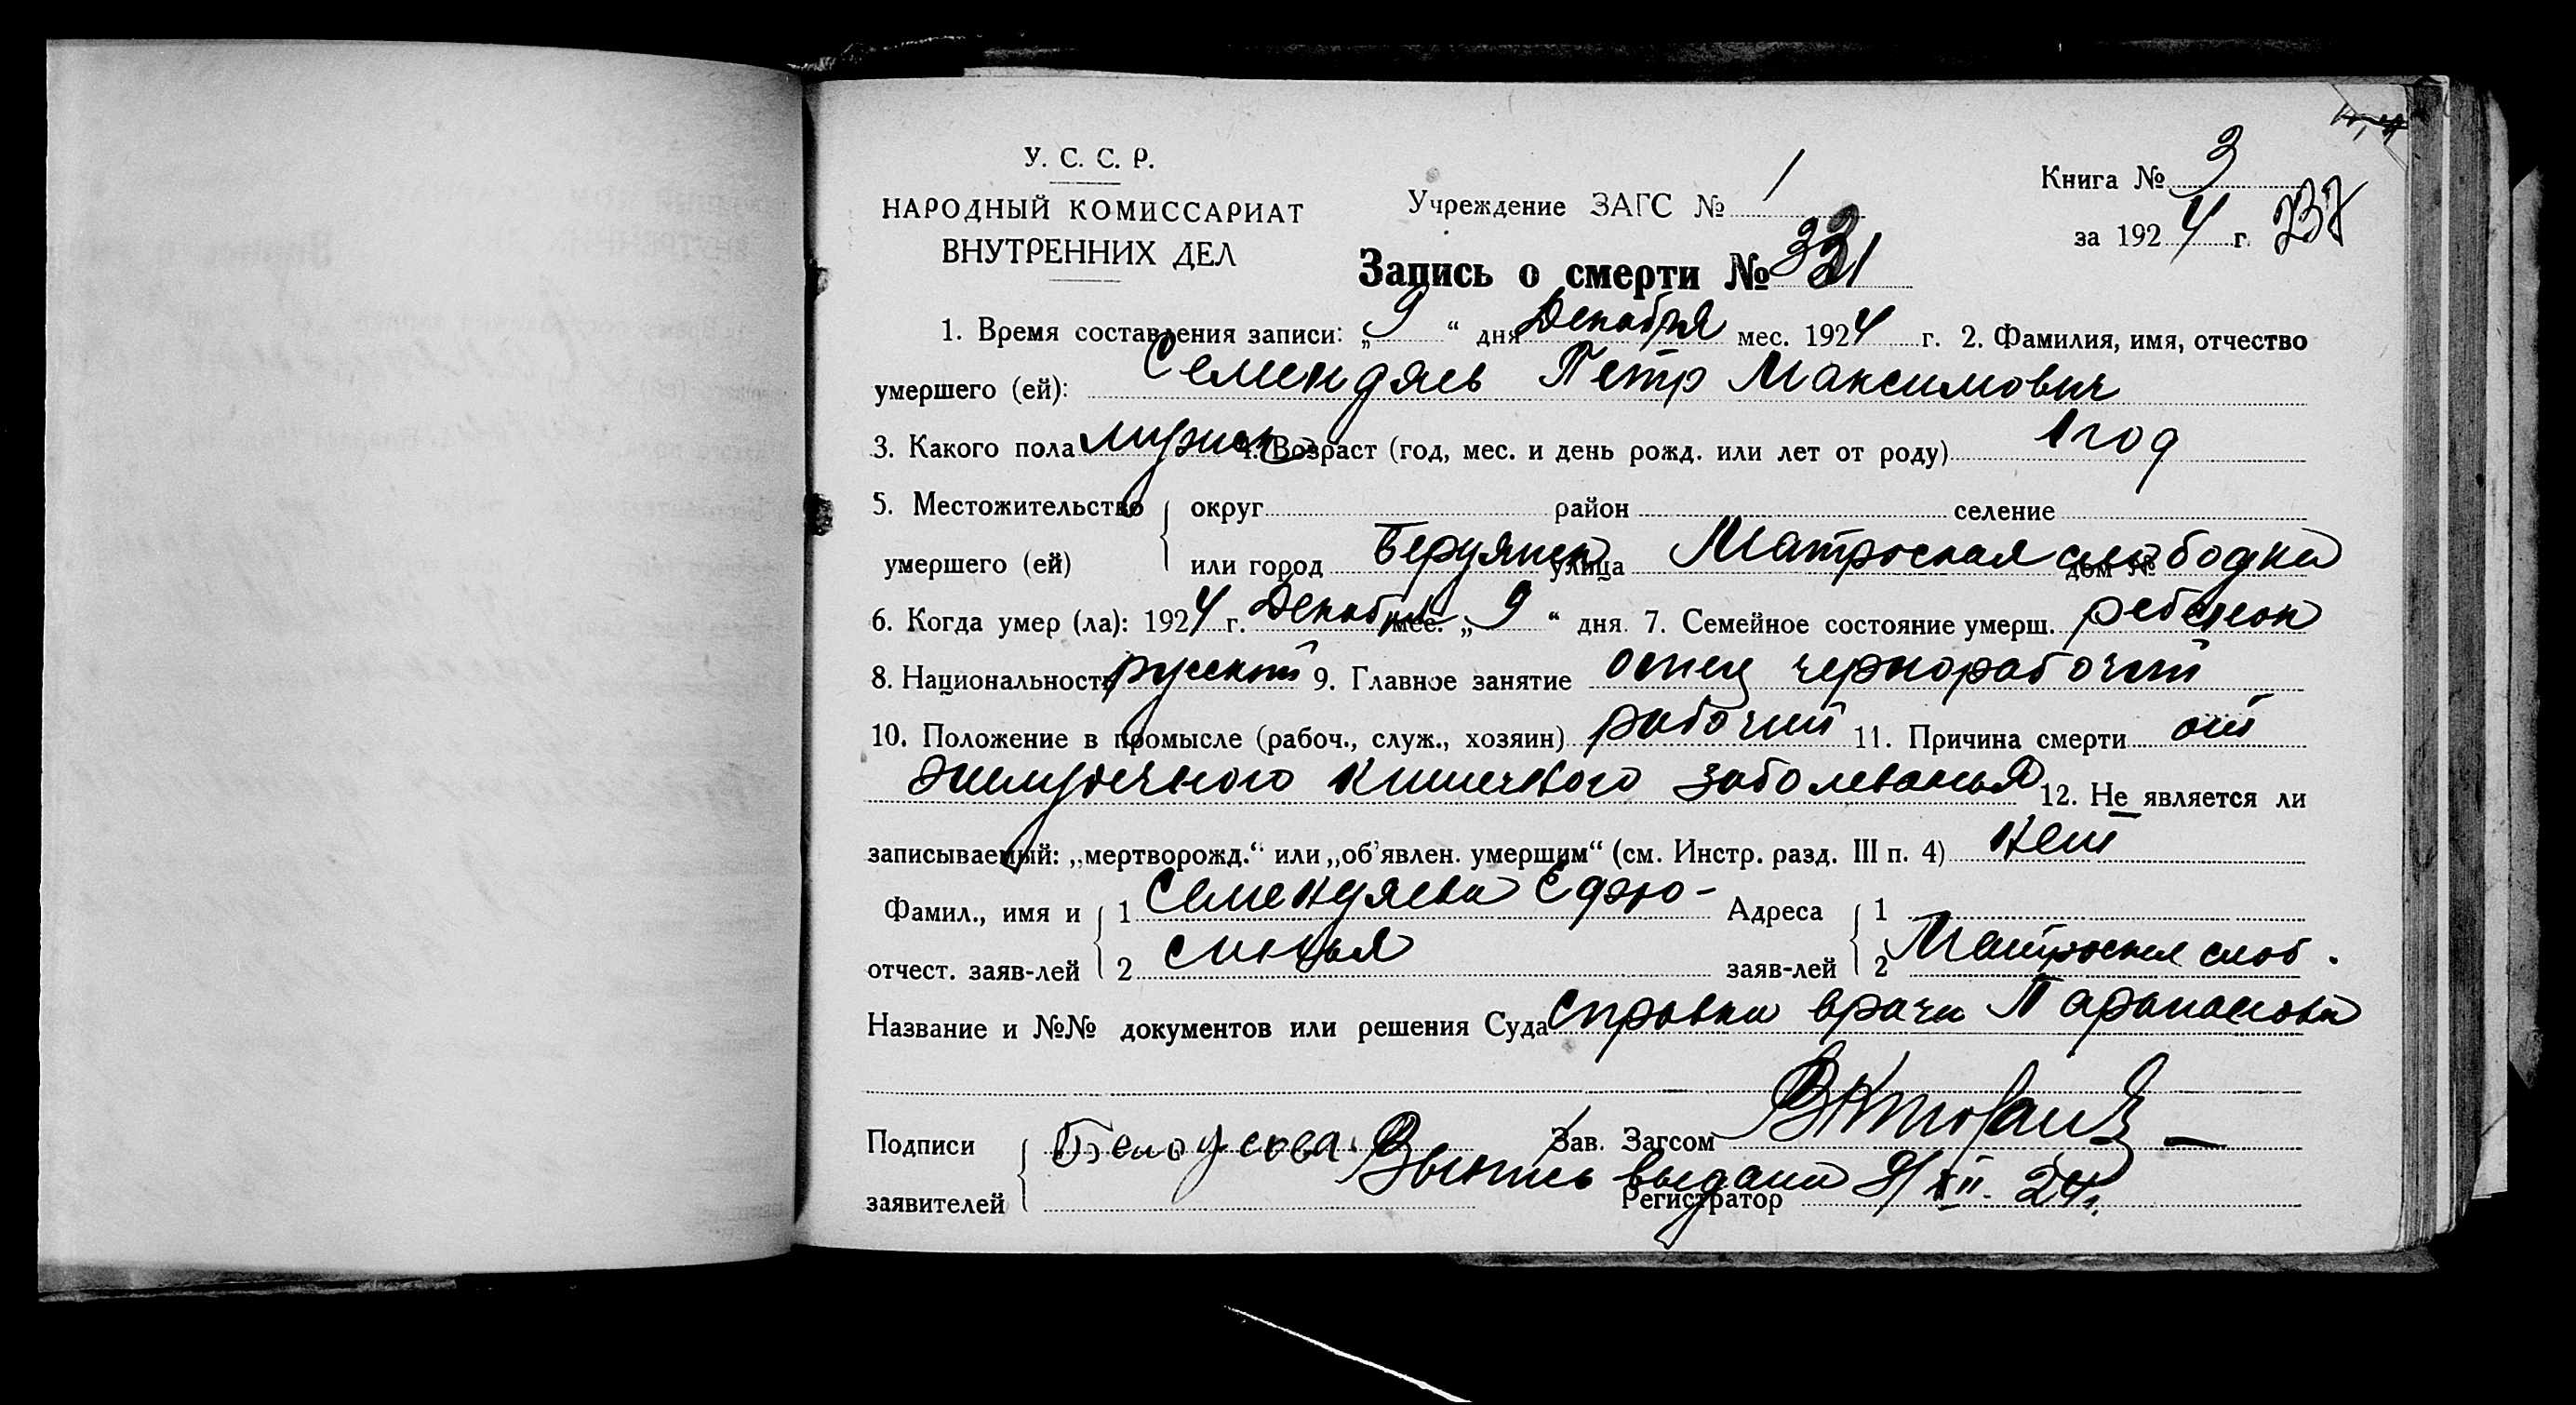 У. С. С. Р.
НАРОДНЫЙ КОМИССАРИАТ
ВНУТРЕННИХ ДЕЛ
Учреждение ЗАГС № 1
Книга № 3
за 1924 г.
Запись о смерти № 331
1. Время составления записи: „9“ дня Декабря мес. 1924 г. 2. Фамилия, имя, отчество
умершего (ей): Семендяев Петр Максимович
3. Какого пола мужск 4. Возраст (год, мес. и день рожд. или лет от роду) 1 год
5. Местожительство умершего (ей) { округ район селение
или город Бердянск улица Матроская слободка дом №
6. Когда умер (ла): 1924 г. Декабря мес. „9“ дня. 7. Семейное состояние умерш. ребенок
8. Национальность русский 9. Главное занятие отец чернорабочий
10. Положение в промысле (рабоч., служ., хозяин) рабочий 11. Причина смерти от
желудечного кишечного заболеванья 12. Не является ли
записываемый: „мертворожд.“ или „об'явлен. умершим“ (см. Инстр. разд. III п. 4) нет
Фамил., имя и { 1 Семендяева Ефро- Адреса { 1
отчест. заяв-лей 2 синья заяв-лей 2 Матроская слоб.
Название и №№ документов или решения Суда Справка врача
Подписи { Белоусова Зав. Загсом
Выпись выдана 9/XII 24 г.
заявителей Регистратор